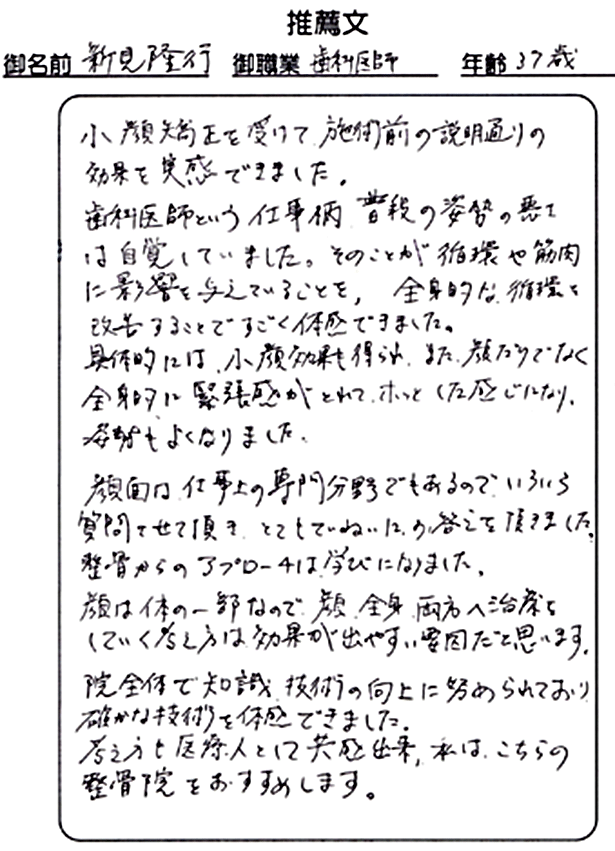 推薦文
御名前 新見隆行 御職業 歯科医師 年齢 37歳
小顔矯正を受けて、施術前の説明通りの
効果を実感できました。
歯科医師という仕事柄、普段の姿勢の悪さ
は自覚していました。そのことが循環や筋肉
に影響を与えていることを、全身的な循環を
改善することですごく体感できました。
具体的には、小顔効果も得られ、また、顔だけでなく
全身的に緊張感がとれて、ホッとした感じになり、
姿勢もよくなりました。
顔面は、仕事上の専門分野でもあるので、いろいろ
質問させて頂き、とてもていねいにお答えを頂きました。
整骨からのアプローチは学びになりました。
顔は体の一部なので、顔、全身、両方へ治療を
していく考え方は、効果が出やすい要因だと思います。
院全体で知識、技術の向上に努められており
確かな技術を体感できました。
考え方も医療人として共感出来、私は、こちらの
整骨院をおすすめします。